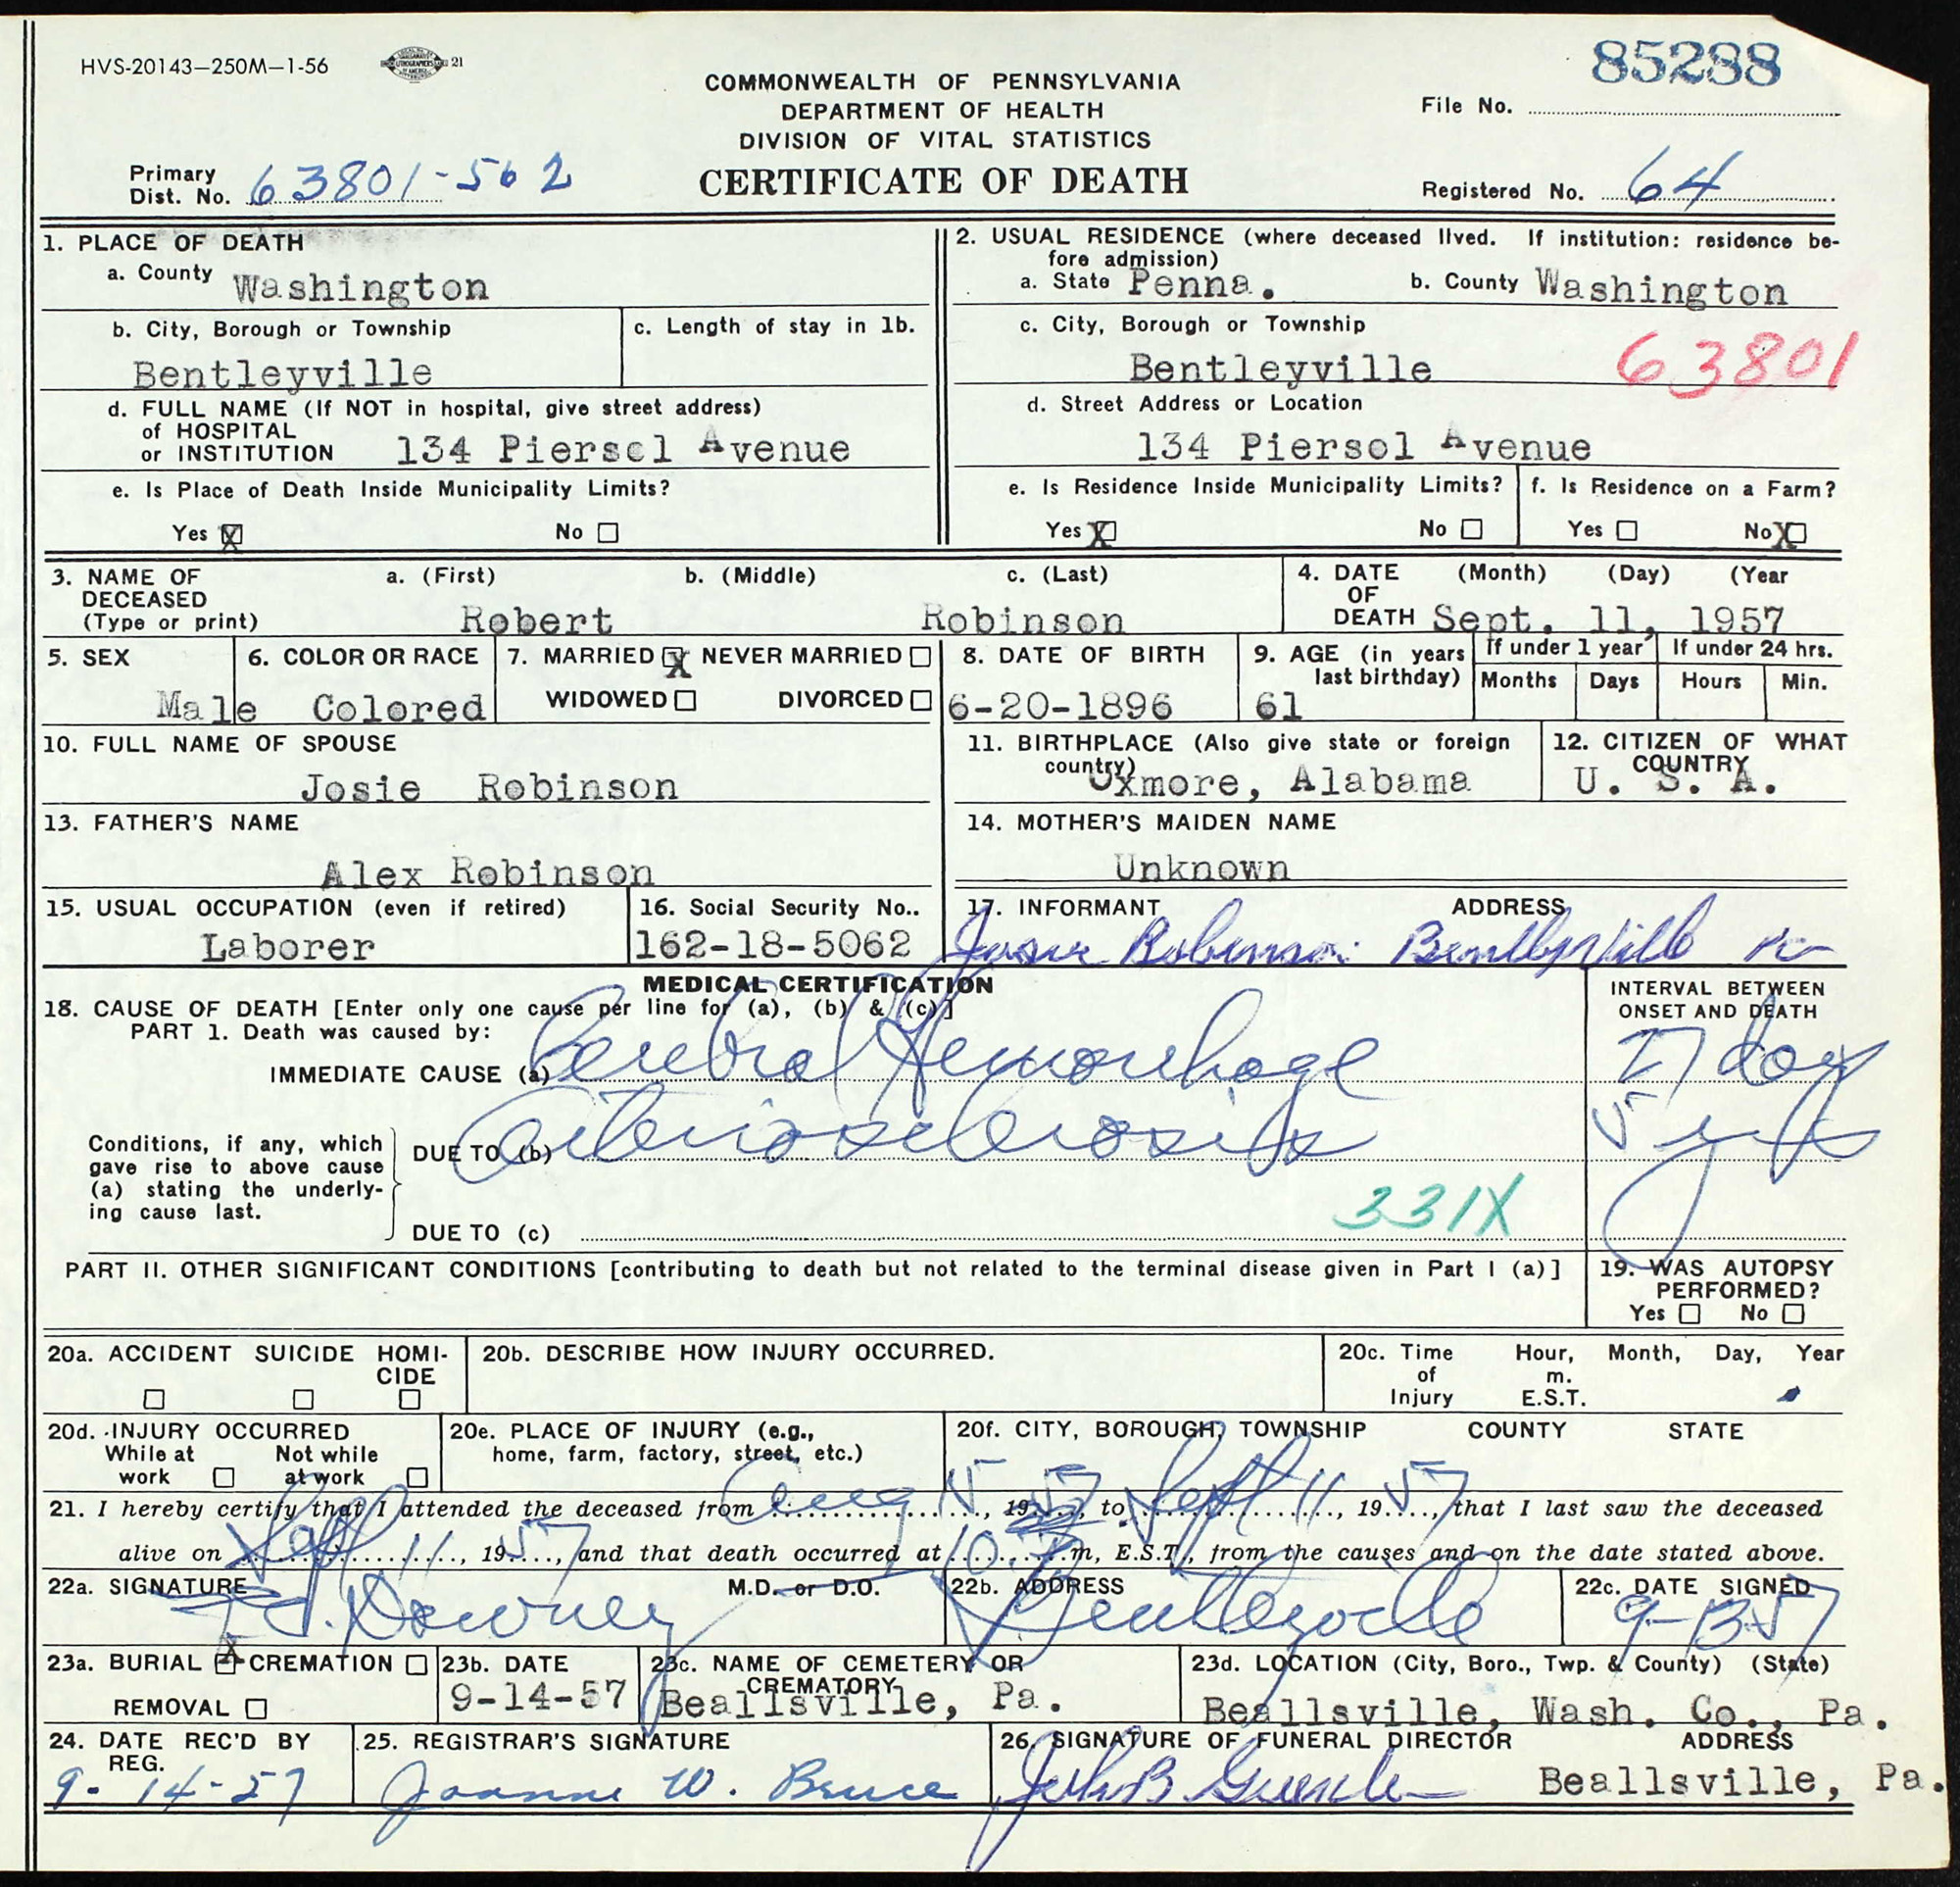 HVS-20143-250M-1-56 21
85288
COMMONWEALTH OF PENNSYLVANIA
DEPARTMENT OF HEALTH
DIVISION OF VITAL STATISTICS
CERTIFICATE OF DEATH
File No.
Primary Dist. No. 63801-562
Registered No. 64
1. PLACE OF DEATH
a. County Washington
b. City, Borough or Township
Bentleyville
c. Length of stay in 1b.
d. FULL NAME (If NOT in hospital, give street address)
of HOSPITAL
or INSTITUTION 134 Piersol Avenue
e. Is Place of Death Inside Municipality Limits?
Yes X No
2. USUAL RESIDENCE (where deceased lived. If institution: residence be-
fore admission)
a. State Penna. b. County Washington
c. City, Borough or Township
Bentleyville 63801
d. Street Address or Location
134 Piersol Avenue
e. Is Residence Inside Municipality Limits?
Yes X No
f. Is Residence on a Farm?
Yes No X
3. NAME OF a. (First) b. (Middle) c. (Last)
DECEASED
(Type or print) Robert Robinson
4. DATE (Month) (Day) (Year
OF
DEATH Sept. 11, 1957
5. SEX
Male
6. COLOR OR RACE
Colored
7. MARRIED X NEVER MARRIED
WIDOWED DIVORCED
8. DATE OF BIRTH
6-20-1896
9. AGE (in years
last birthday)
61
If under 1 year
Months Days
If under 24 hrs.
Hours Min.
10. FULL NAME OF SPOUSE
Josie Robinson
11. BIRTHPLACE (Also give state or foreign
country)
Oxmore, Alabama
12. CITIZEN OF WHAT
COUNTRY
U. S. A.
13. FATHER'S NAME
Alex Robinson
14. MOTHER'S MAIDEN NAME
Unknown
15. USUAL OCCUPATION (even if retired)
Laborer
16. Social Security No..
162-18-5062
17. INFORMANT ADDRESS
Josie Robinson Bentleyville Pa
MEDICAL CERTIFICATION
18. CAUSE OF DEATH [Enter only one cause per line for (a), (b) & (c)]
PART 1. Death was caused by:
IMMEDIATE CAUSE (a) Cerebral Hemorrhage
INTERVAL BETWEEN
ONSET AND DEATH
27 days
Conditions, if any, which
gave rise to above cause
(a) stating the underly-
ing cause last.
DUE TO (b) Arteriosclerosis
5 yrs
331X
DUE TO (c)
PART II. OTHER SIGNIFICANT CONDITIONS [contributing to death but not related to the terminal disease given in Part I (a)]
19. WAS AUTOPSY
PERFORMED?
Yes No
20a. ACCIDENT SUICIDE HOMI-
CIDE
20b. DESCRIBE HOW INJURY OCCURRED.
20c. Time Hour, Month, Day, Year
of m.
Injury E.S.T.
20d. INJURY OCCURRED
While at Not while
work at work
20e. PLACE OF INJURY (e.g.,
home, farm, factory, street, etc.)
20f. CITY, BOROUGH, TOWNSHIP COUNTY STATE
21. I hereby certify that I attended the deceased from Aug 15, 1957, to Sept 11, 1957, that I last saw the deceased
alive on Sept 11, 1957, and that death occurred at 10 m, E.S.T., from the causes and on the date stated above.
22a. SIGNATURE M.D. or D.O.
Downey
22b. ADDRESS
Bentleyville
22c. DATE SIGNED
9-13-57
23a. BURIAL X CREMATION
REMOVAL
23b. DATE
9-14-57
23c. NAME OF CEMETERY OR
CREMATORY
Beallsville, Pa.
23d. LOCATION (City, Boro., Twp. & County) (State)
Beallsville, Wash. Co., Pa.
24. DATE REC'D BY
REG.
9-14-57
25. REGISTRAR'S SIGNATURE
Joanne W. Bruce
26. SIGNATURE OF FUNERAL DIRECTOR ADDRESS
John B Beallsville, Pa.